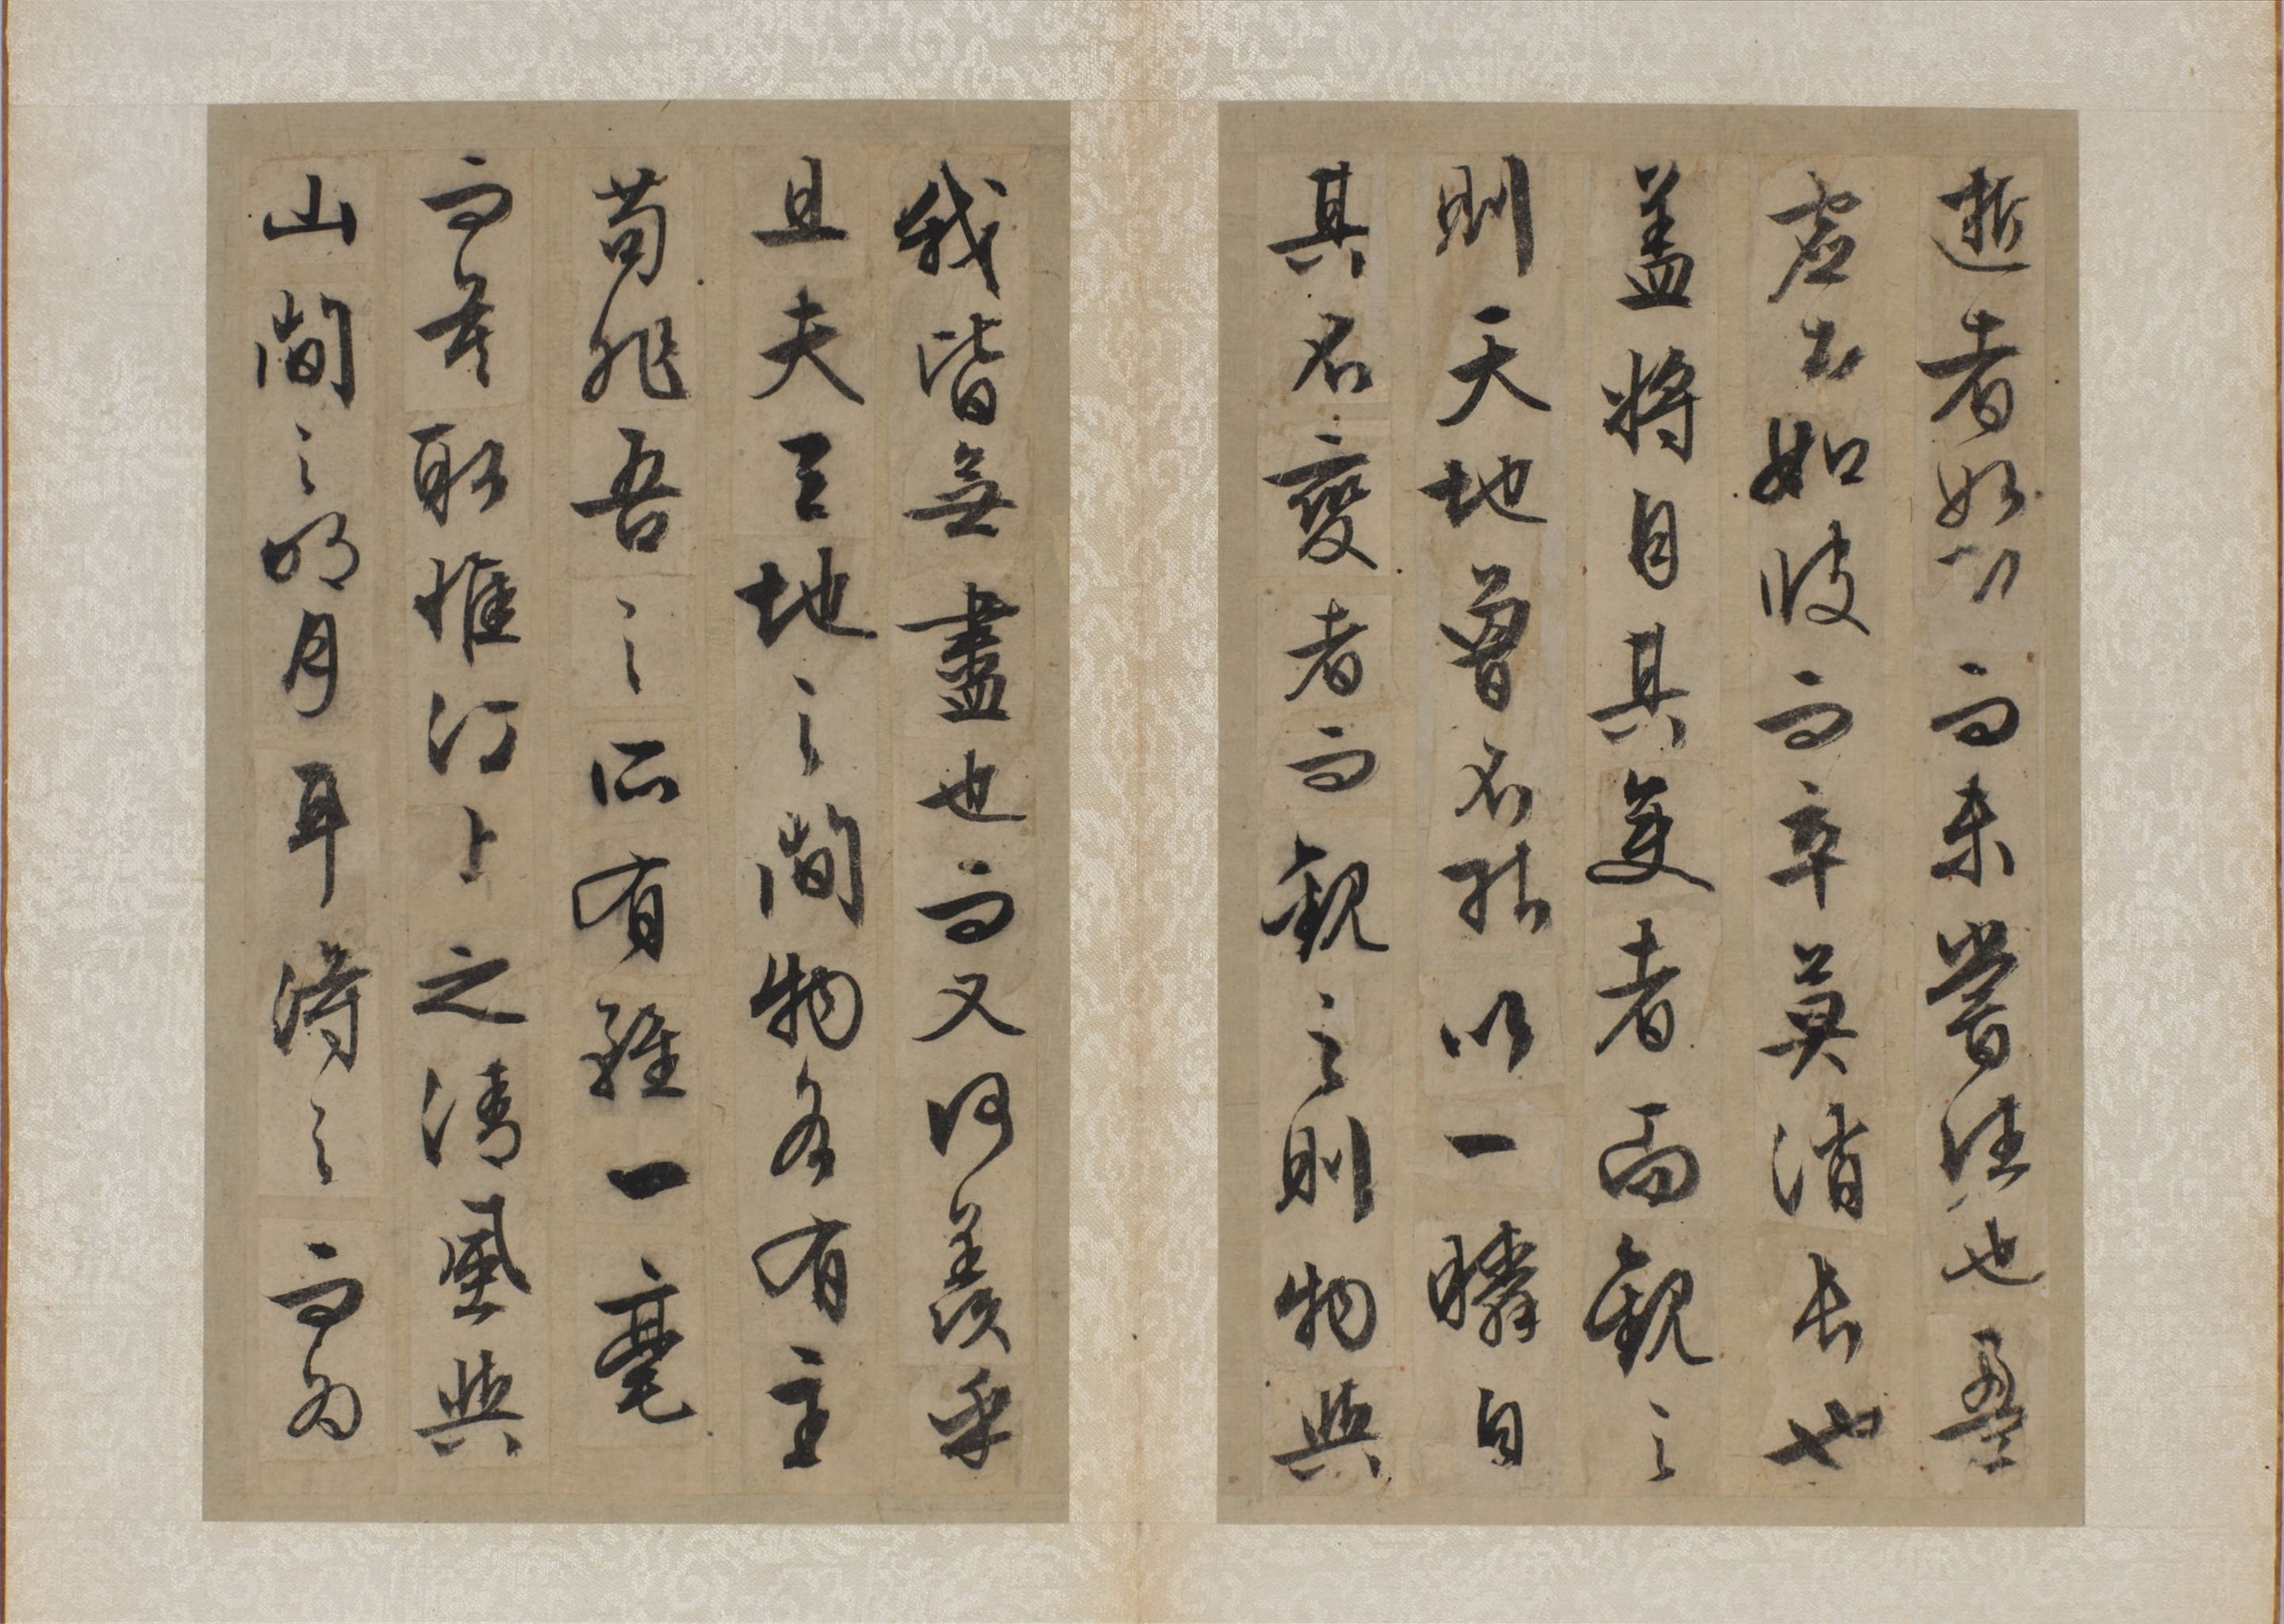 逝者如斯而未嘗往也盈
虛者如彼而卒莫消長也
蓋將自其變者而觀之
則天地曾不能以一瞬自
其不變者而觀之則物與
我皆無盡也而又何羨乎
且夫天地之間物各有主
苟非吾之所有雖一毫
而莫取惟江上之清風與
山間之明月耳得之而為